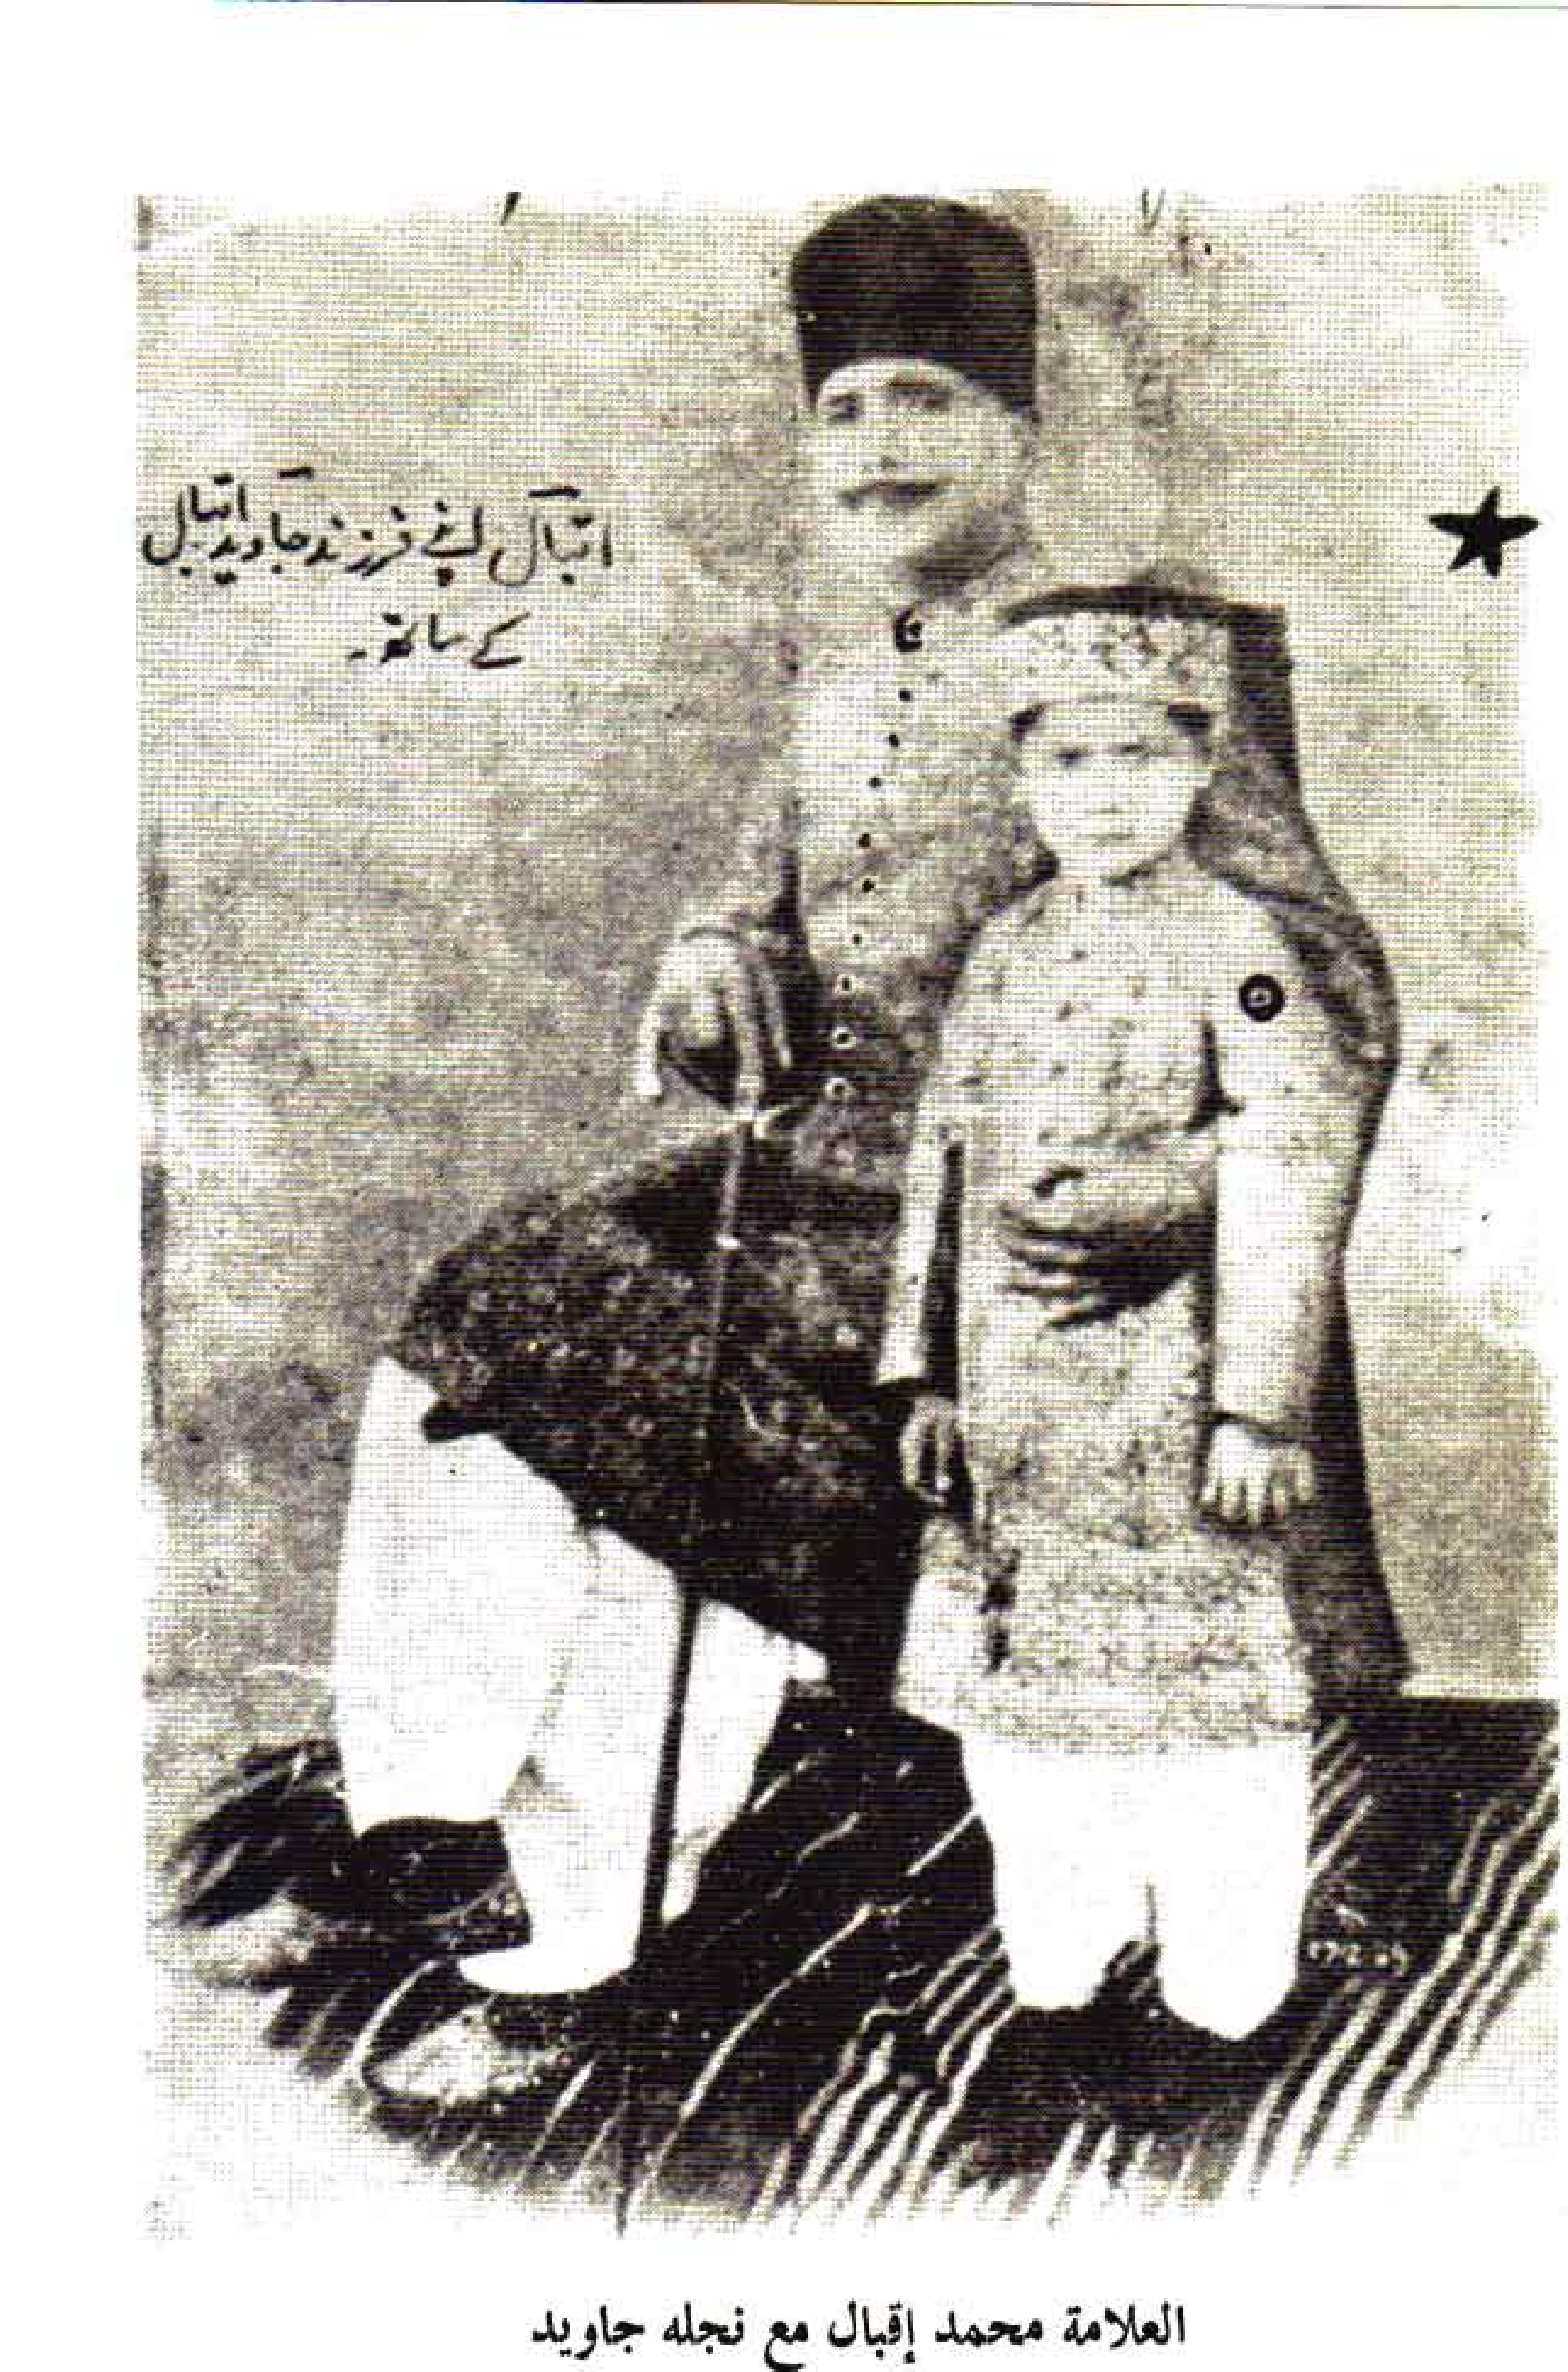 اقبال اپنے فرزند جاوید اقبال
کے ساتھ۔
العلامة محمد إقبال مع نجله جاويد